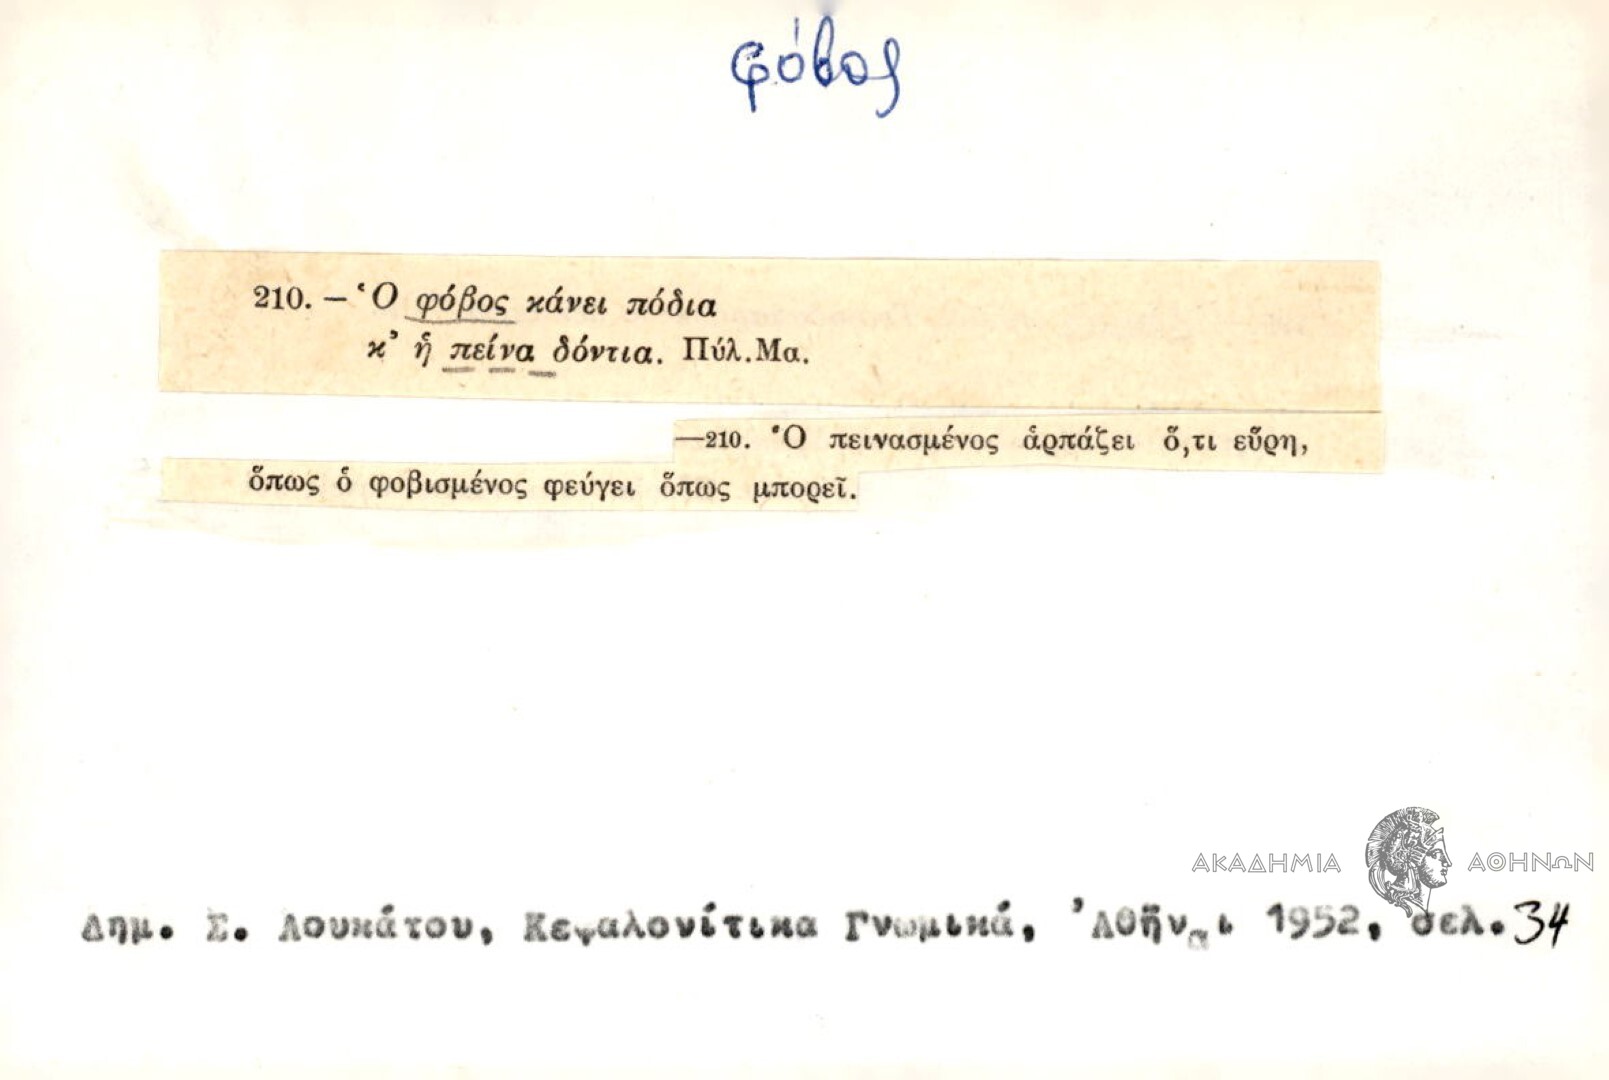 φόβος
210. – Ὁ φόβος κάνει πόδια
κ’ ἡ πείνα δόντια. Πύλ.Μα.
—210. Ὁ πεινασμένος ἁρπάζει ὅ,τι εὕρη,
ὅπως ὁ φοβισμένος φεύγει ὅπως μπορεῖ.
ΑΚΑΔΗΜΙΑ ΑΘΗΝΩΝ
Δημ. Σ. Λουκάτου, Κεφαλονίτικα Γνωμικά, Ἀθῆναι 1952, σελ. 34